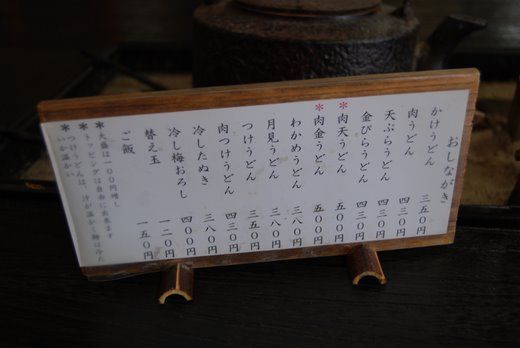 おしながき
かけうどん 三五〇円
肉うどん 四三〇円
天ぷらうどん 四三〇円
金ぴらうどん 四〇〇円
*肉天うどん 五〇〇円
*肉金うどん 五〇〇円
わかめうどん 三八〇円
月見うどん 三八〇円
つけうどん 三五〇円
肉つけうどん 四三〇円
冷したぬき 三八〇円
冷し梅おろし 四〇〇円
替え玉 一二〇円
ご飯 一五〇円
*大盛は一〇〇円増し
*トッピングは自由に出来ます
*つけうどんは、汁が温かく麺は冷た
いか温かい